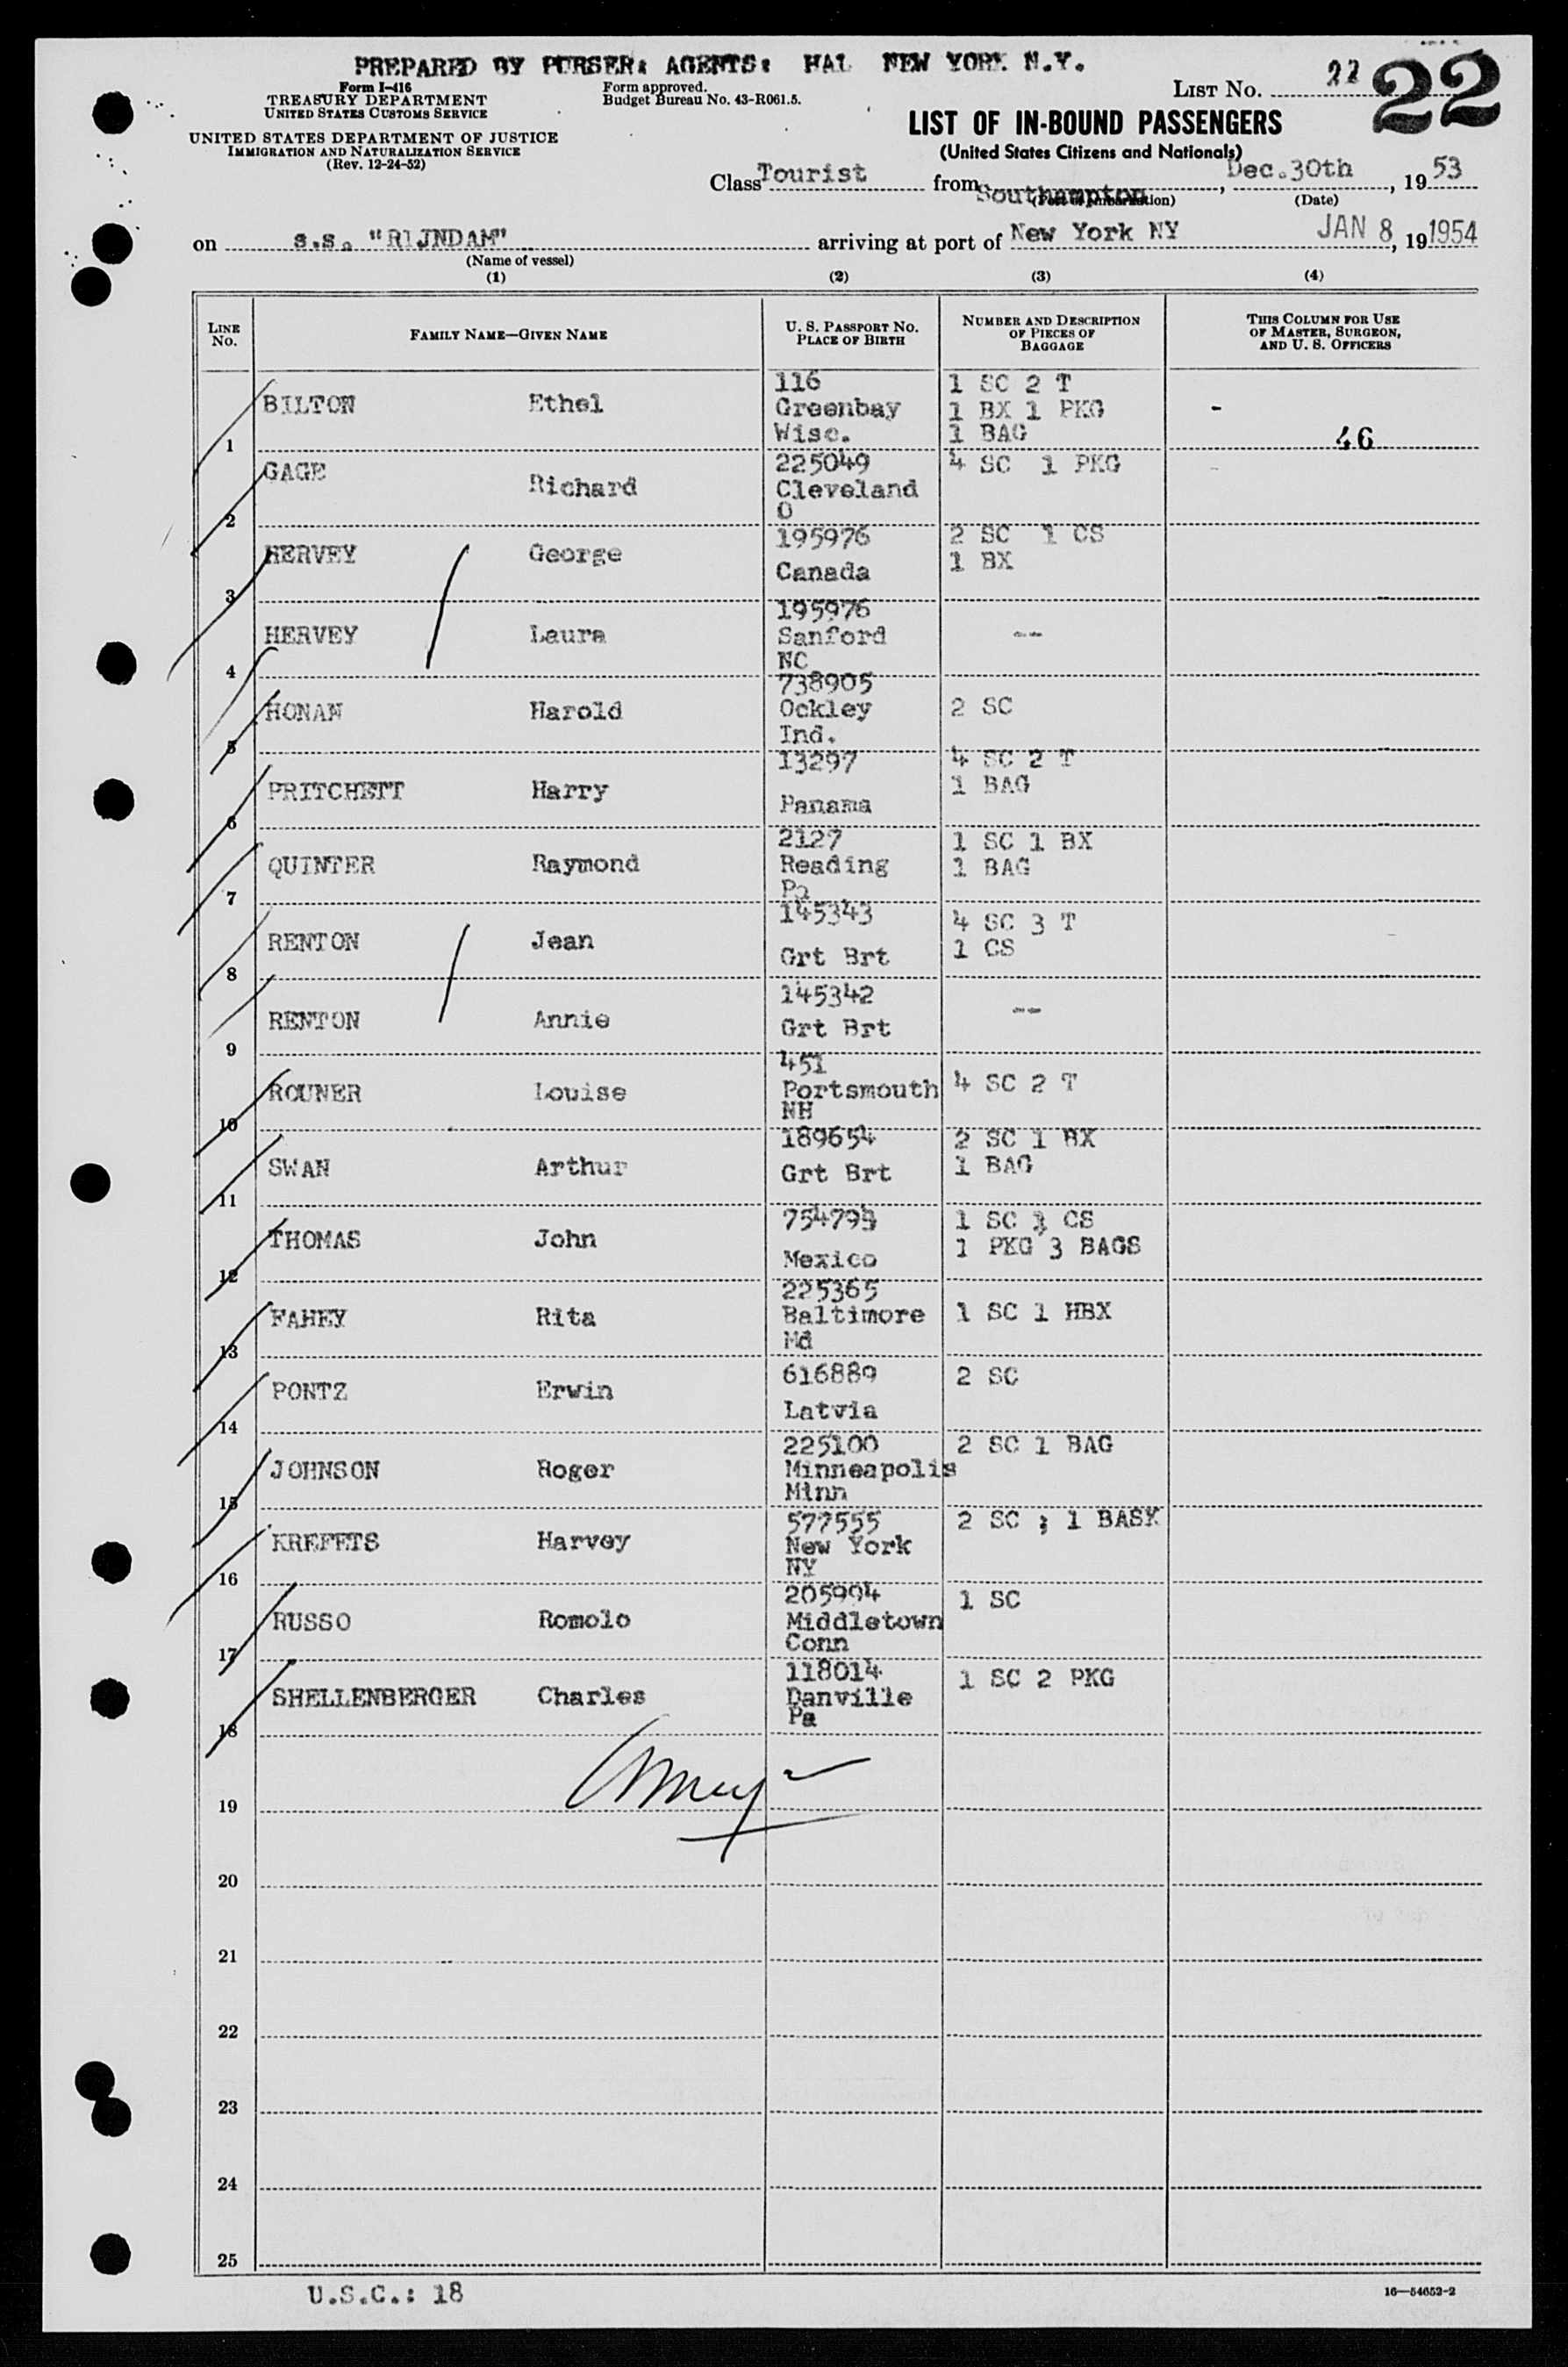 PREPARED BY PURSER: AGENTS: HAL NEW YORK N.Y.
Form I-416
TREASURY DEPARTMENT
UNITED STATES CUSTOMS SERVICE
Form approved.
Budget Bureau No. 43-R061.5.
LIST NO. 22 22
UNITED STATES DEPARTMENT OF JUSTICE
IMMIGRATION AND NATURALIZATION SERVICE
(Rev. 12-24-52)
LIST OF IN-BOUND PASSENGERS
(United States Citizens and Nationals)
Class Tourist from Southampton, Dec.30th, 19 53
(Port of embarkation) (Date)
on s.s. "RIJNDAM" arriving at port of New York NY JAN 8, 19 1954
(Name of vessel)
(1) (2) (3) (4)
LINE NO. FAMILY NAME—GIVEN NAME U. S. PASSPORT NO. PLACE OF BIRTH NUMBER AND DESCRIPTION OF PIECES OF BAGGAGE THIS COLUMN FOR USE OF MASTER, SURGEON, AND U. S. OFFICERS
1 BILTON Ethel 116 Greenbay Wisc. 1 SC 2 T 1 BX 1 PKG 1 BAG - 46
2 GAGE Richard 225049 Cleveland O 4 SC 1 PKG
3 HERVEY George 195976 Canada 2 SC 1 CS 1 BX
4 HERVEY Laura 195976 Sanford NC --
5 HONAN Harold 738905 Ockley Ind. 2 SC
6 PRITCHETT Harry 13297 Panama 4 SC 2 T 1 BAG
7 QUINTER Raymond 2127 Reading Pa 1 SC 1 BX 1 BAG
8 RENTON Jean 145343 Grt Brt 4 SC 3 T 1 CS
9 RENTON Annie 145342 Grt Brt --
10 ROUNER Louise 451 Portsmouth NH 4 SC 2 T
11 SWAN Arthur 189654 Grt Brt 2 SC 1 BX 1 BAG
12 THOMAS John Mexico 1 SC 3 CS 1 PKG 3 BAGS
13 FAHEY Rita 225365 Baltimore Md 1 SC 1 HBX
14 PONTZ Erwin 616889 Latvia 2 SC
15 JOHNSON Roger 225100 Minneapolis Minn 2 SC 1 BAG
16 KREFETS Harvey 577555 New York NY 2 SC ; 1 BASK
17 RUSSO Romolo 205994 Middletown Conn 1 SC
18 SHELLENBERGER Charles 118014 Danville Pa 1 SC 2 PKG
19
20
21
22
23
24
25
U.S.C.: 18
16—54652-2